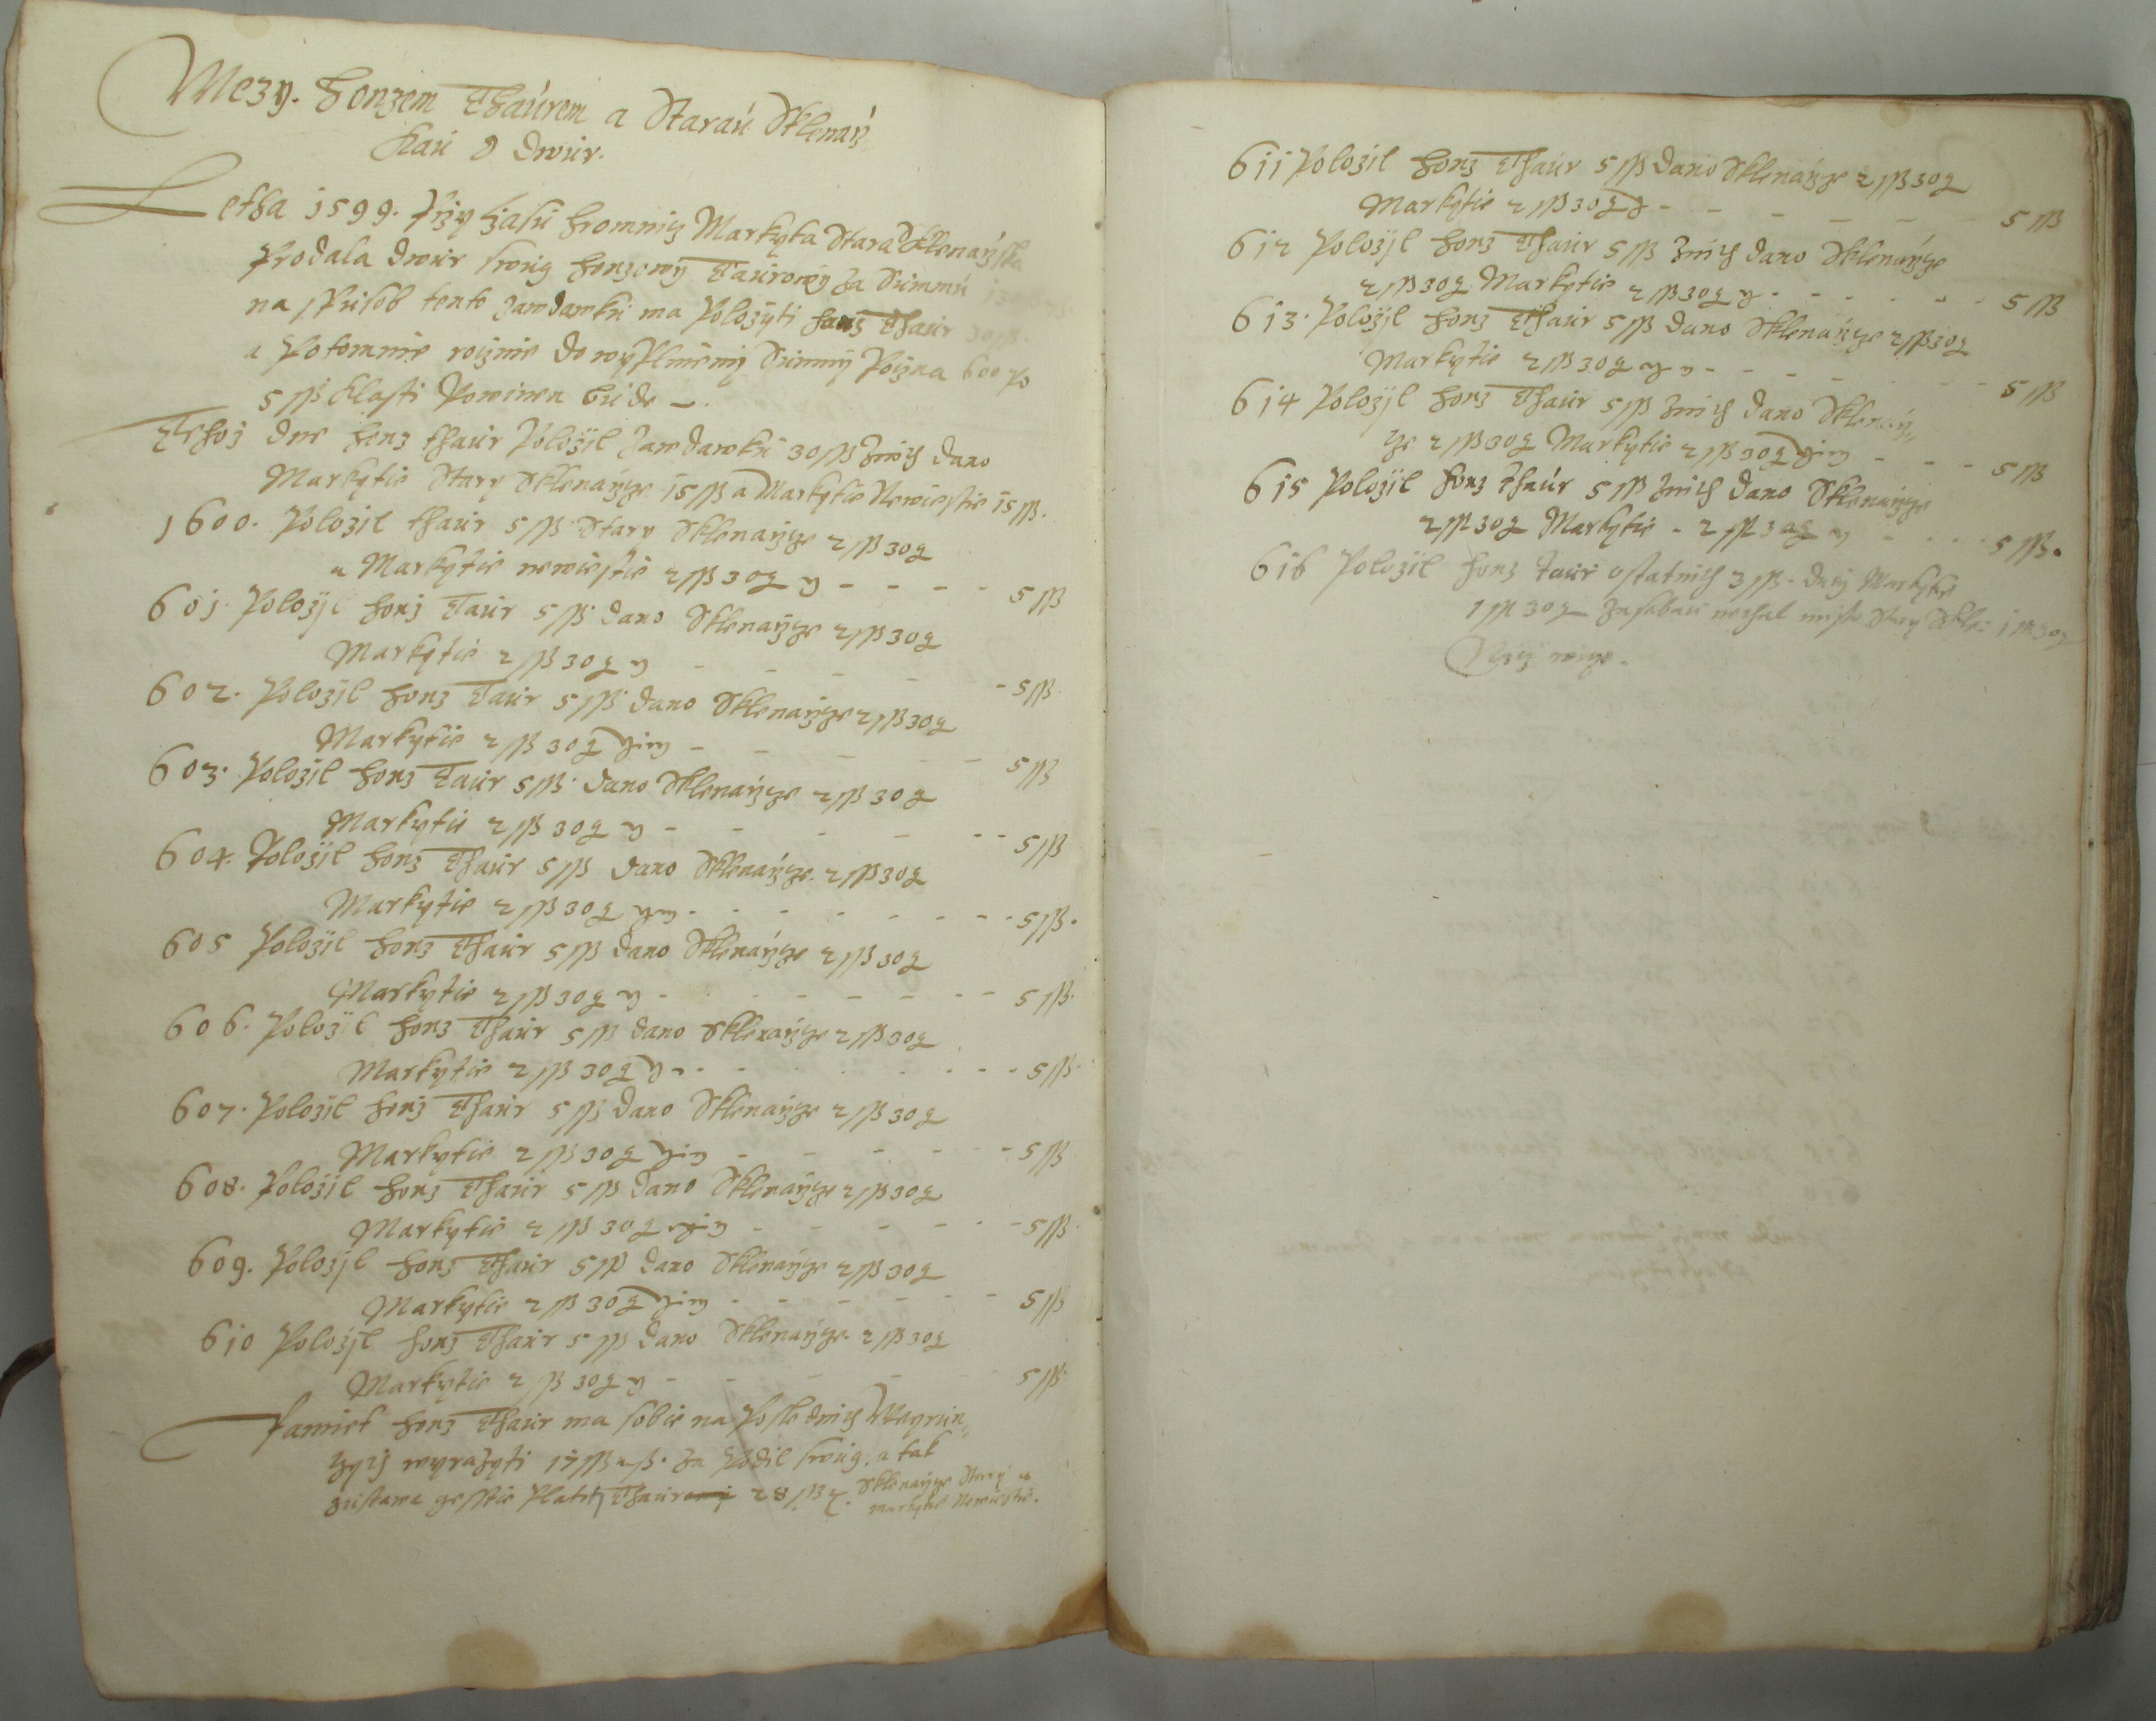 Mezy. Honzem Thaurem a Starau Sklenarz
kau o Dwur.
Letha 1599. Przy Czasu Hromnicz Markyta Stara Sklenarzka
Prodala dwur swug Honzowy Taurowy za Summu
na spusob tento zawdawku ma Polozyti Honz Thaur 30 ss.
a Potomnie rocznie do wyplnieny Summy Poczna 600 po
5 ss klasti Powinen bude
Tehoz dne Honz Thaur Polozil zawdawku 30 ss znich dano
Markytie Stary Sklenarzce 15 ss a Markytie Newiestie 15 ss.
1600. Polozil Thaur 5 ss Stary Sklenarzce 2 ss 30 g
a Markytie newiestie 2 ss 30 g y - - - - 5 ss
601. Polozyl Honz Taur 5 ss dano Sklenarzce 2 ss 30 g
Markytie 2 ss 30 g y - - - - - 5 ss.
602. Polozil Honz Taur 5 ss dano Sklenarzce 2 ss 30 g
Markytie 2 ss 30 g gim - - - - - 5 ss
603. Polozil Honz Taur 5 ss. dano Sklenarzce 2 ss 30 g
Markytie 2 ss 30 g y - - - - - - 5 ss
604. Polozyl Honz Thaur 5 ss dano Sklenarzce 2 ss 30 g
Markytie 2 ss 30 g gim - - - - - - 5 ss.
605 Polozyl Honz Thaur 5 ss dano Sklenarzce 2 ss 30 g
Markytie 2 ss 30 g y - - - - - - 5 ss.
606. Polozil Honz Thaur 5 ss dano Sklenarzce 2 ss 30 g
Markytie 2 ss 30 g y - - - - - - 5 ss.
607. Polozil Honz Thaur 5 ss dano Sklenarzce 2 ss 30 g
Markytie 2 ss 30 g gim - - - - - - 5 ss
608. Polozil Honz Thaur 5 ss dano Sklenarzce 2 ss 30 g
Markytie 2 ss 30 g gim - - - - - - 5 ss.
609. Polozyl Honz Thaur 5 ss dano Sklenarzce 2 ss 30 g
Markytie 2 ss 30 g gim - - - - - - 5 ss
610 Polozyl Honz Thaur 5 ss dano Sklenarzce 2 ss 30 g
Markytie 2 ss 30 g y - - - - - 5 ss.
Pamiet Honz Thaur ma sobie na Poslednich Wayrun
czych wyraziti 17 ss za Podil swug. a tak
zustawa gesstie Platiti Thaur 28 ss Sklenarzce Stary a
Markytie Newiestie.
611 Polozil Honz Thaur 5 ss dano Sklenarzce 2 ss 30 g
Markytie 2 ss 30 g y - - - - - - 5 ss
612 Polozyl Honz Thaur 5 ss znich dano Sklenarzce
2 ss 30 g Markytie 2 ss 30 g y - - - - - - 5 ss
613. Polozyl Honz Thaur 5 ss dano Sklenarzce 2 ss 30 g
Markytie 2 ss 30 g y - - - - - - 5 ss
614 Polozyl Honz Thaur 5 ss znich dano Sklenarz
ce 2 ss 30 g Markytie 2 ss 30 g gim - - - 5 ss
615 Polozil Honz Thaur 5 ss znich dano Sklenarzce
2 ss 30 g Markytie - 2 ss 30 g y - - - - 5 ss.
616 Polozil Honz Taur ostatnich 3 ss - dal Markytie
1 ss 30 g za sebau nechal misto Stary Skle: 1 ss 30 g